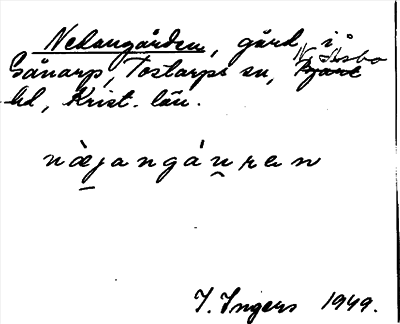 Nedangården, gård i
Sånarp, Tostarps sn, N. Åsbo
hd, Krist. län.
næjangánren
I. Ingers 1949.